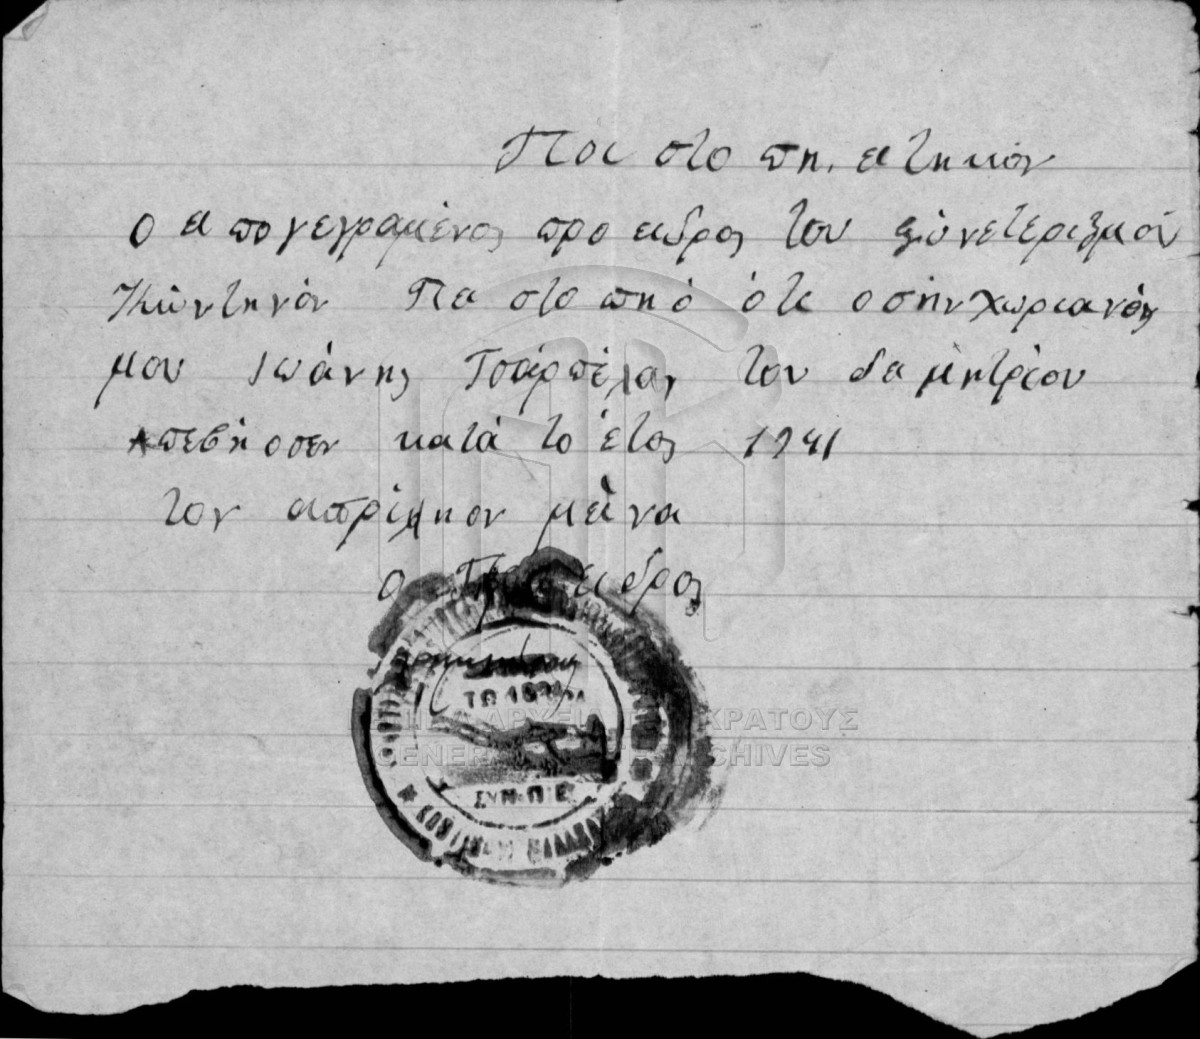 Πισ στο πη. ατηκόν
Ο α πο γεγραμένος προ αιδρος του συνετεριζμού
Κωντηνόν Πισ στο πη ό ότι ο σήνχωριανός
μου Ιωάνης Τσάρπέλας του δα μητρίου
Απεβήοσεν κατά το έτος 1941
τον απρίληον μαίνα
ο Προ αιδρος
ΤΩ 1
ΣΥΝ. Π.Ε.
ΓΕΝΙΚΑ ΑΡΧΕΙΑ ΤΟΥ ΚΡΑΤΟΥΣ
GENERAL STATE ARCHIVES